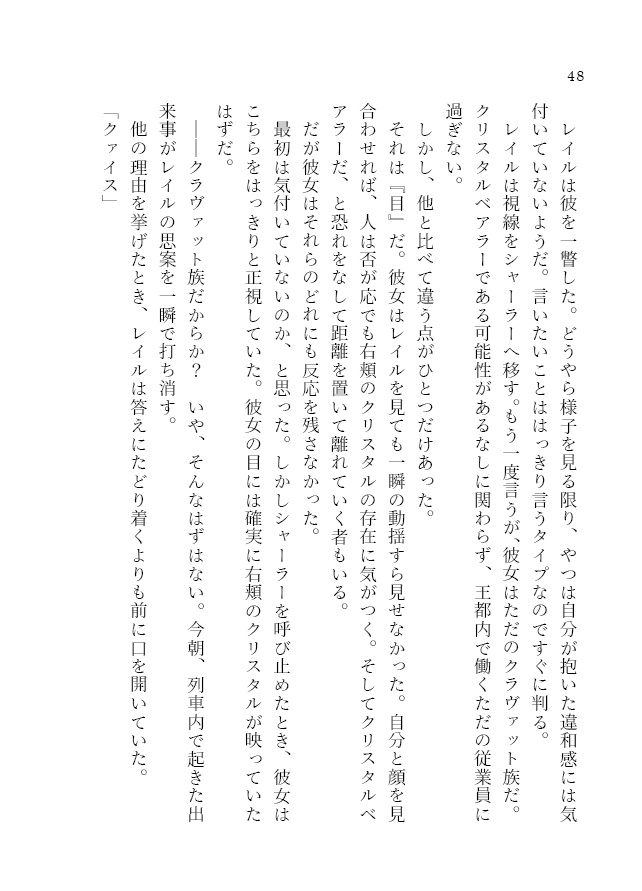 48
　レイルは彼を一瞥した。どうやら様子を見る限り、やつは自分が抱いた違和感には気
付いていないようだ。言いたいことははっきり言うタイプなのですぐに判る。
　レイルは視線をシャーラーへ移す。もう一度言うが、彼女はただのクラヴァット族だ。
クリスタルベアラーである可能性があるなしに関わらず、王都内で働くただの従業員に
過ぎない。
　しかし、他と比べて違う点がひとつだけあった。
　それは『目』だ。彼女はレイルを見ても一瞬の動揺すら見せなかった。自分と顔を見
合わせれば、人は否が応でも右頬のクリスタルの存在に気がつく。そしてクリスタルベ
アラーだ、と恐れをなして距離を置いて離れていく者もいる。
　だが彼女はそれらのどれにも反応を残さなかった。
　最初は気付いていないのか、と思った。しかしシャーラーを呼び止めたとき、彼女は
こちらをはっきりと正視していた。彼女の目には確実に右頬のクリスタルが映っていた
はずだ。
　――クラヴァット族だからか？　いや、そんなはずはない。今朝、列車内で起きた出
来事がレイルの思案を一瞬で打ち消す。
　他の理由を挙げたとき、レイルは答えにたどり着くよりも前に口を開いていた。
「クァイス」